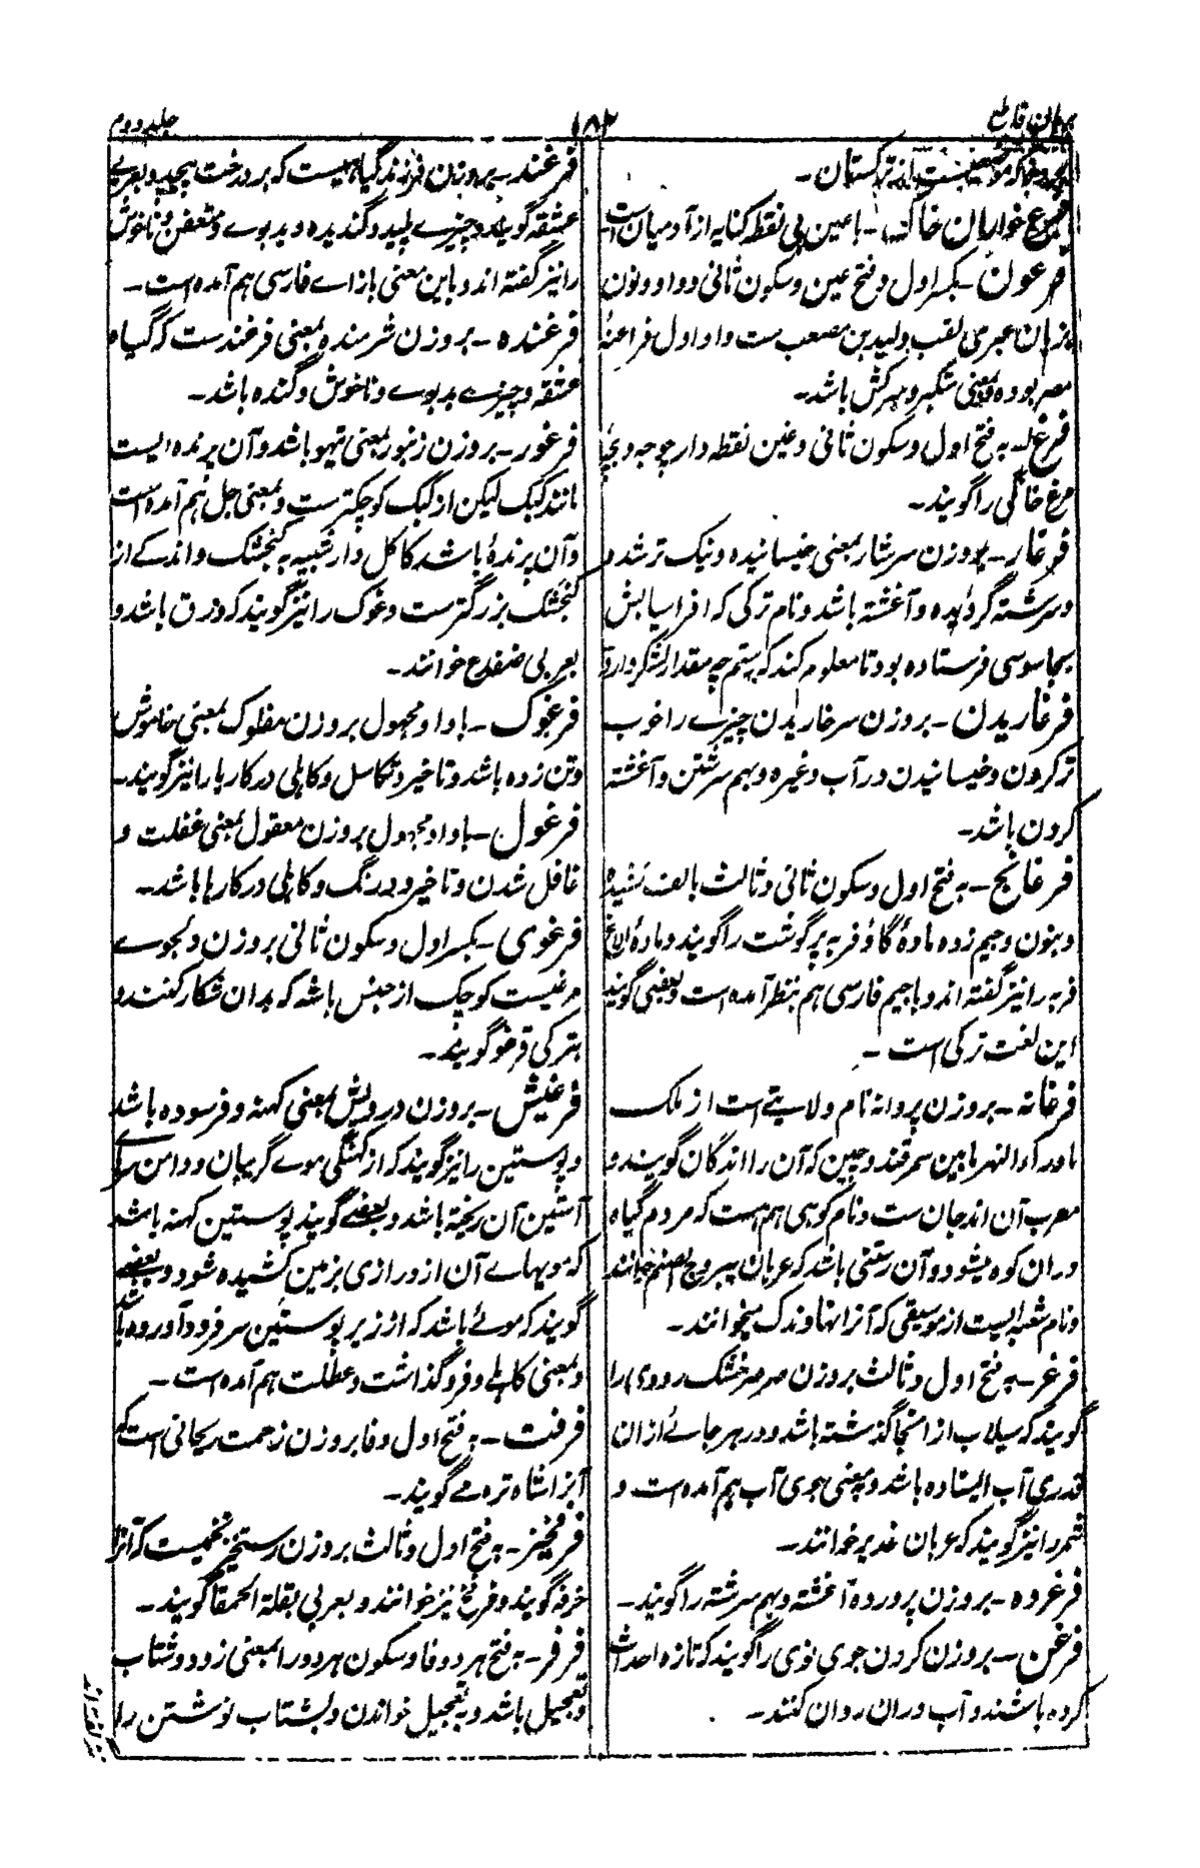 برهان قاطع
۱۸۲
جلد دوم
موضعیست از ترکستان۔
خواران خاک۔ باعین بی نقطه کنایه از آدمیان است
فرعون۔ بکسر اول و فتح عین و سکون ثانی و واو و نون
بزبان عبری لقب ولید بن مصعب ست و او اول فراعنهٔ
مصر بوده و بمعنی متکبر و سرکش باشد۔
فرغ۔ به فتح اول و سکون ثانی و غین نقطه دار جوجه و بچهٔ
مرغ خانگی را گویند۔
فرغار۔ بروزن سرشار بمعنی خیسانیده و نیک تر شده
و سرشته گردیده و آغشته باشد و نام ترکی که افراسیابش
بجاسوسی فرستاده بود تا معلوم کند که رستم چه مقدار لشکر دارد
فرغاریدن۔ بروزن سرخاریدن چیزے را خوب
تر کردن و خیسانیدن در آب و غیره و بهم سرشتن و آغشته
کردن باشد۔
فرغانج۔ به فتح اول و سکون ثانی و ثالث بالف کشیده
و بنون و جیم زده مادهٔ گاؤ فربه پرگوشت را گویند و مادهٔ الاغ
فربه را نیز گفته اند و باجیم فارسی هم بنظر آمده است و بعضی گویند
این لغت ترکی است۔
فرغانه۔ بروزن پروانه نام ولایتے است از ملک
ماوراء النهر مابین سمرقند و چین که آن را اندگان گویند و
معرب آن اندجان ست و نام کوهی هم هست که مردم گیاه
دران کوه میشود و آن رستنی باشد که عربان یبروح الصنم خوانند
و نام شعبه ایست از موسیقی که آنرا نهاوندک میخوانند۔
فرغر۔ به فتح اول و ثالث بروزن صرصر خشک رودی را
گویند که سیلاب از انجا گذشته باشد و در هر جائے ازان
قدری آب ایستاده باشد و بمعنی جوی آب هم آمده است و
شمر را نیز گویند که عربان غدیر خوانند۔
فرغرده۔ بروزن پرورده آغشته و بهم سرشته را گویند۔
فرغن۔ بروزن کردن جوی نوی را گویند که تازه احداث
کرده باشند و آب دران روان کنند۔
فرغند۔ بروزن فرزند گیاهیست که بر درخت پیچد و بعربے
عشقه گویند و چیزے پلید و گندیده و بدبوے و متعفن و ناخوش
را نیز گفته اند و باین معنی بازاے فارسی هم آمده است۔
فرغنده۔ بروزن شرمنده بمعنی فرغندست که گیاه
عشقه و چیزے بدبوے و ناخوش و گنده باشد۔
فرغور۔ بروزن زنبور بمعنی تیهو باشد و آن پرنده ایست
مانند کبک لیکن از کبک کوچکترست و بمعنی چل هم آمده است
و آن پرندهٔ باشد کاکل دار شبیه به گنجشک و اندکے از
گنجشک بزرگترست و غوک را نیز گویند که وزق باشد و
بعربی ضفدع خوانند۔
فرغوک۔ باواو مجهول بروزن مفلوک بمعنی خاموش
و تن زده باشد و تاخیر و تکاسل و کاهلی در کارها را نیز گویند۔
فرغول۔ باواو مجهول بروزن معقول بمعنی غفلت و
غافل شدن و تاخیر و درنگ و کاهلی در کارها باشد۔
فرغوی۔ بکسر اول و سکون ثانی بروزن دلجوے
مرغیست کوچک از جنس باشه که بدان شکار کنند و
بترکی قرغو گویند۔
فرغیش۔ بروزن درویش بمعنی کهنه و فرسوده باشد
و پوستین را نیز گویند که از کهنگی موے گریبان و دامن و سر
آستین آن ریخته باشد و بعضے گویند پوستین کهنه باشد
که مویهاے آن از درازی بر زمین کشیده شود و بعضے
گویند که موئے باشد که از زیر پوستین سر فرود آورده باشد
و بمعنی کاهلے و فروگذاشت و عطلت هم آمده است۔
فرفت۔ به فتح اول و فا بروزن زحمت ریحانی است که
آنرا شاه تره مے گویند۔
فرفخیز۔ به فتح اول و ثالث بروزن رستخیز تخمیست که آنرا
خرفه گویند و فرفخ نیز خوانند و بعربی بقلة الحمقا گویند۔
فرفر۔ به فتح هر دو فا و سکون هر دو را بمعنی زود و شتاب
و تعجیل باشد و به تعجیل خواندن و بشتاب نوشتن را